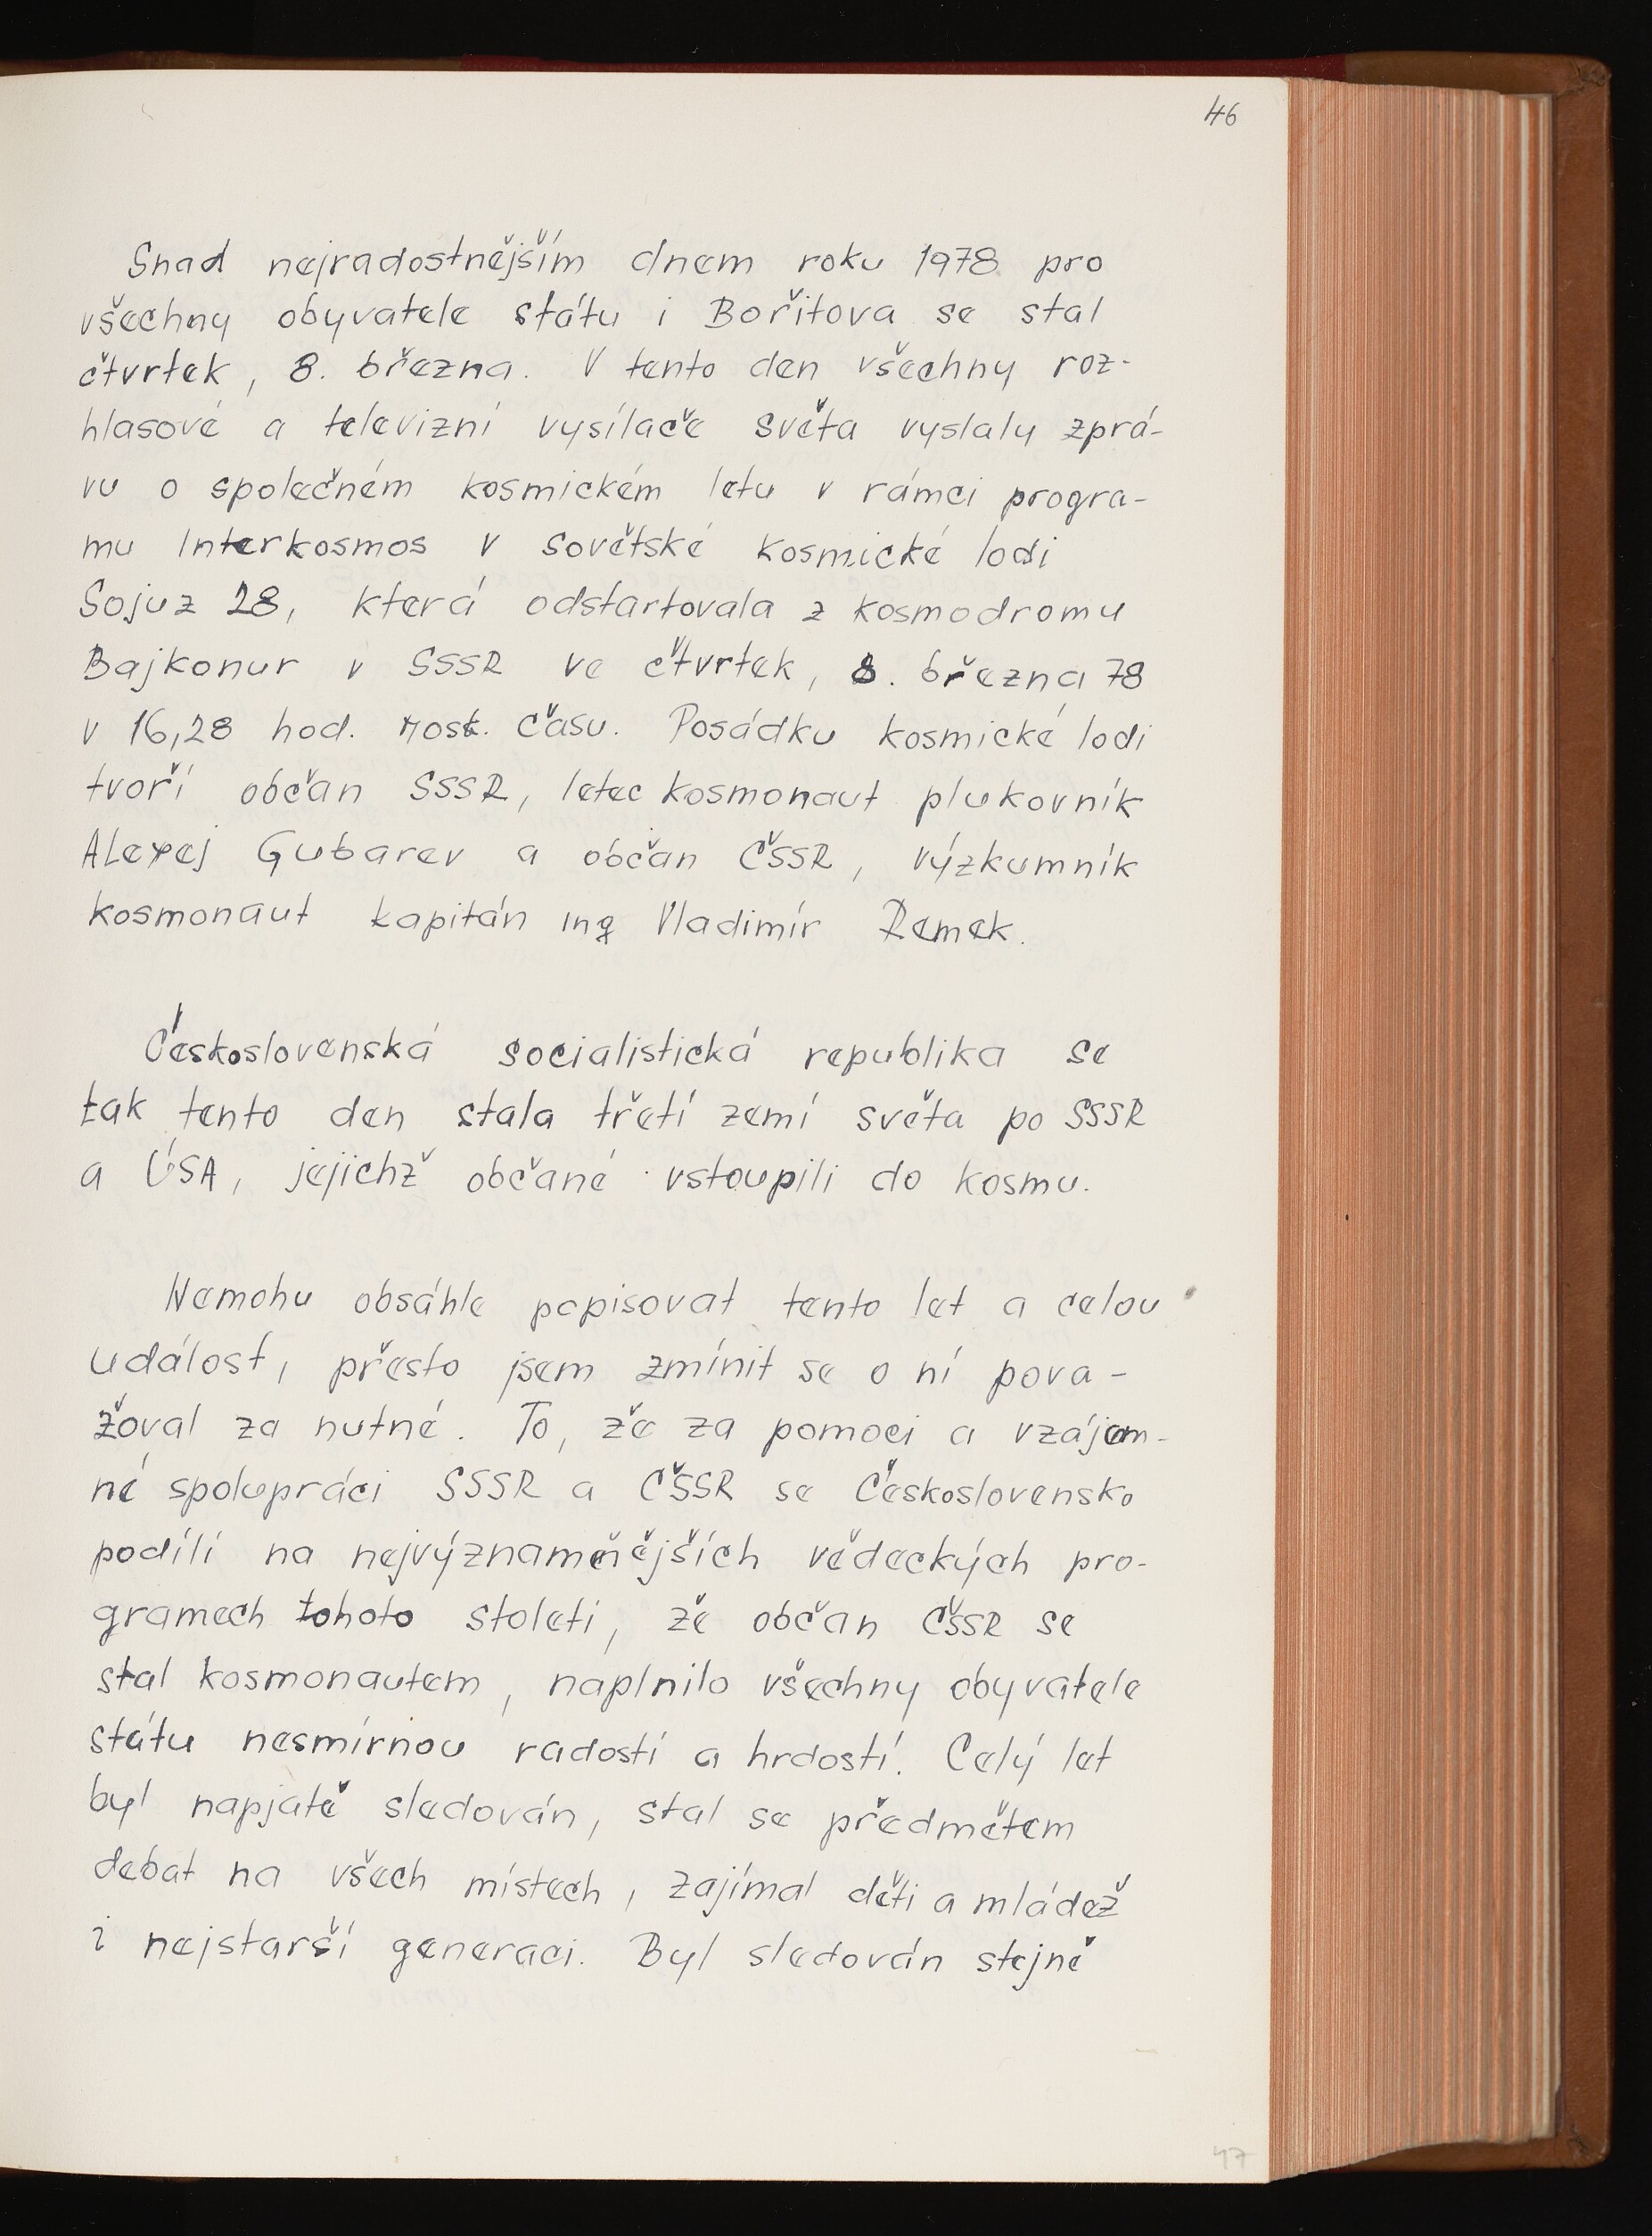 46
Snad nejradostnějším dnem roku 1978 pro
všechny obyvatele státu i Bořitova se stal
čtvrtek, 8. března. V tento den všechny roz-
hlasové a televizní vysílače světa vyslaly zprá-
vu o společném kosmickém letu v rámci progra-
mu Interkosmos v sovětské kosmické lodi
Sojuz 28, která odstartovala z kosmodromu
Bajkonur v SSSR ve čtvrtek, 8. března 78
v 16,28 hod. mosk. času. Posádku kosmické lodi
tvoří občan SSSR, letec kosmonaut plukovník
Alexej Gubarev a občan ČSSR, výzkumník
kosmonaut kapitán ing Vladimír Remek.
Československá socialistická republika se
tak tento den stala třetí zemí světa po SSSR
a ÚSA, jejichž občané vstoupili do kosmu.
Nemohu obsáhle popisovat tento let a celou
událost, přesto jsem zmínit se o ní pova-
žoval za nutné. To, že za pomoci a vzájem-
né spolupráci SSSR a ČSSR se Československo
podílí na nejvýznamějších vědeckých pro-
gramech tohoto století, že občan ČSSR se
stal kosmonautem, naplnilo všechny obyvatele
státu nesmírnou radostí a hrdostí. Celý let
byl napjatě sledován, stal se předmětem
debat na všech místech, zajímal děti a mládež
i nejstarší generaci. Byl sledován stejně
47